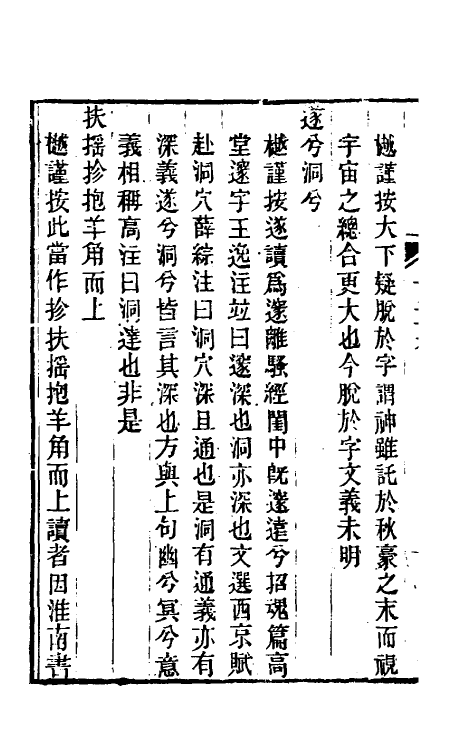 樾謹按大下疑脫於字謂神雖託於秋豪之末而視
宇宙之總合更大也今脫於字文義未明
遂兮洞兮
樾謹按遂讀爲邃離騷經閨中旣邃遠兮招魂篇高
堂邃宇王逸注竝曰邃深也洞亦深也文選西京賦
赴洞穴薛綜注曰洞穴深且通也是洞有通義亦有
深義遂兮洞兮皆言其深也方與上句幽兮冥兮意
義相稱高注曰洞達也非是
扶搖抮抱羊角而上
樾謹按此當作抮扶搖抱羊角而上讀者因淮南書